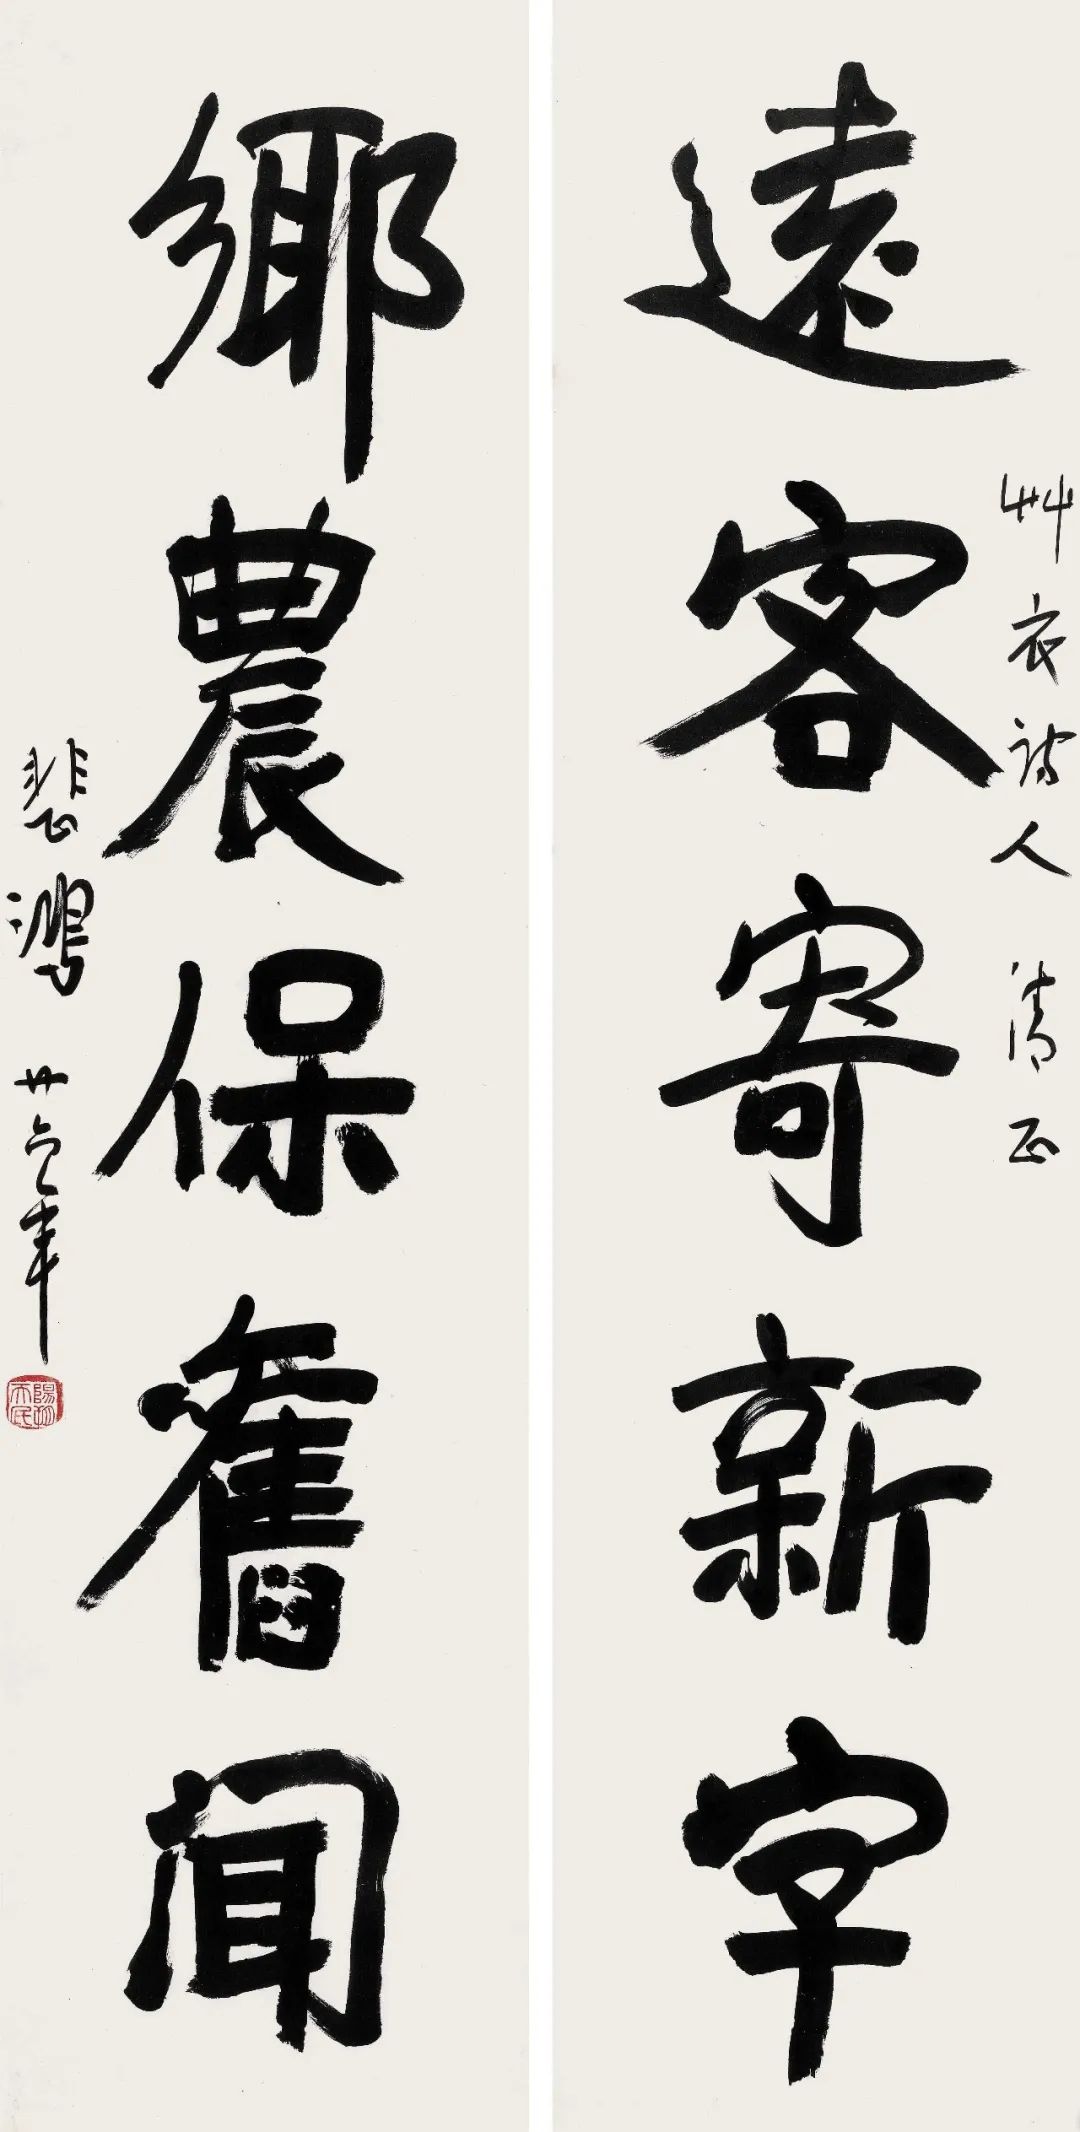 遠客寄新字
艸衣詩人 清正
鄉農保舊聞
悲鴻 廿六年
陽朔天民